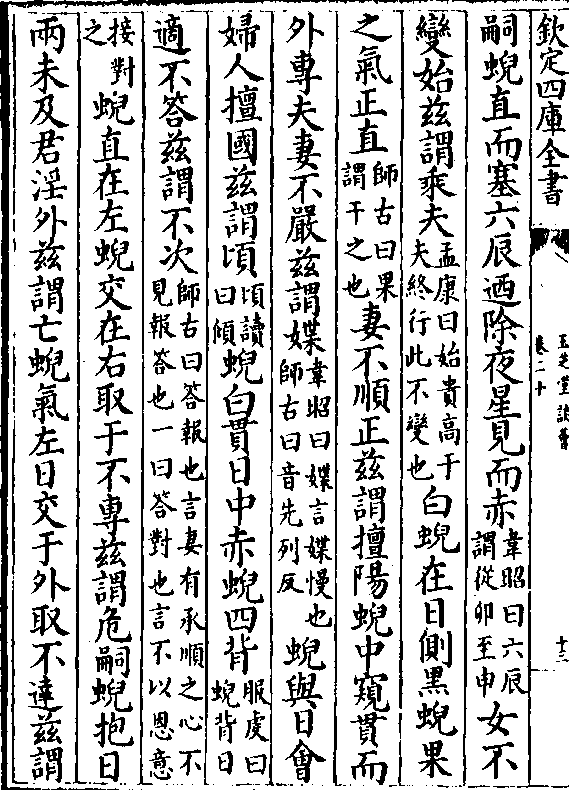 欽定四庫全書
玉芝堂談薈
卷二十
十三
嗣蜺直而塞六辰迺除夜星見而赤韋昭曰六辰謂從卯至申女不
變始兹謂乘夫孟康曰始貴高于夫終行此不變也白蜺在日側黑蜺果
之氣正直師古曰果謂干之也妻不順正兹謂擅陽蜺中窺貫而
外專夫妻不嚴兹謂媟韋昭曰媟言媟慢也師古曰音先列反蜺與日會
婦人擅國兹謂頃頃讀曰傾蜺白貫日中赤蜺四背服虔曰蜺背日
適不答兹謂不次師古曰答報也言妻有承順之心不見報答也一曰答對也言不以恩意
接對之蜺直在左蜺交在右取于不專兹謂危嗣蜺抱日
兩未及君淫外兹謂亡蜺氣左日交于外取不達兹謂